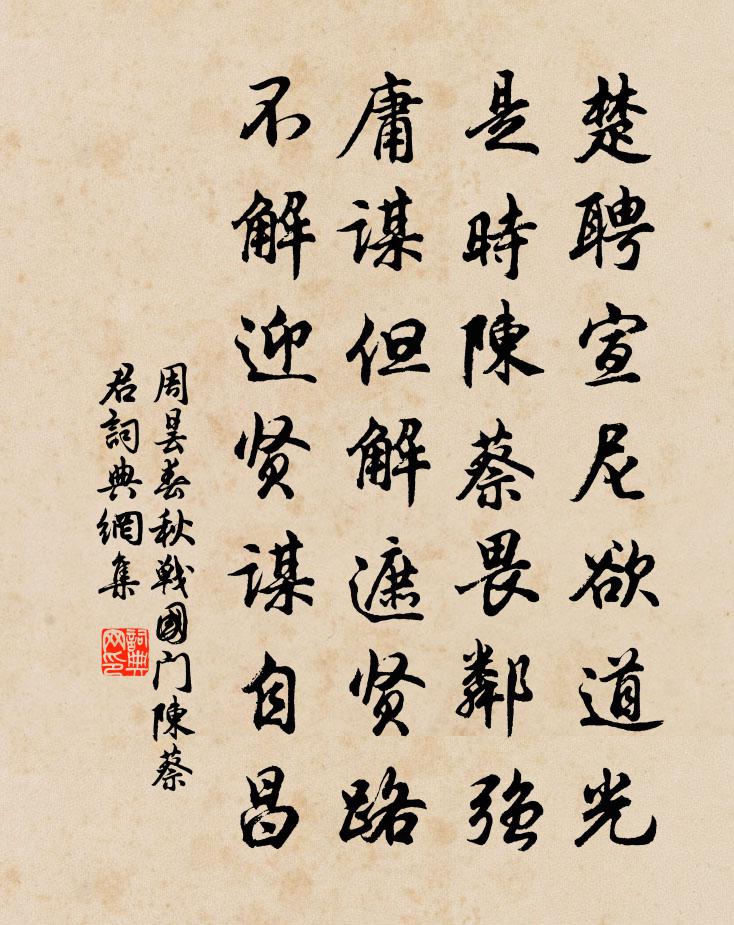 楚聘宣尼欲道光
是時陳蔡畏鄰強
庸謀但解遮贤路
不解迎贤谋自昌
周昙春秋戦國门陳蔡
君詞典網集
詞典网印